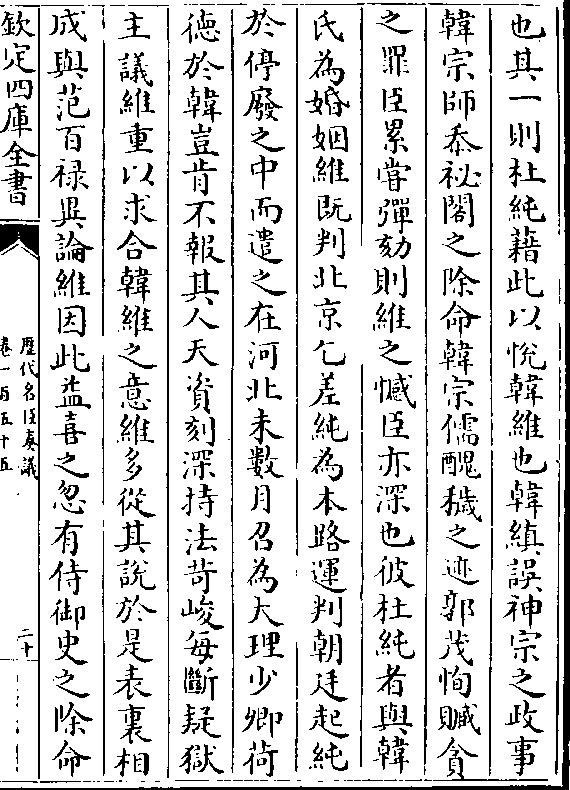 也其一則杜純藉此以悅韓維也韓縝誤神宗之政事
韓宗師忝祕閣之除命韓宗儒醜穢之迹郭茂恂贓貪
之罪臣累嘗彈劾則維之憾臣亦深也彼杜純者與韓
氏為婚姻維既判北京乞差純為本路運判朝廷起純
於停廢之中而遣之在河北未數月召為大理少卿荷
徳於韓豈肯不報其人天資刻深持法苛峻每斷疑獄
主議維重以求合韓維之意維多從其說於是表裏相
成與范百禄異論維因此益喜之忽有侍御史之除命
欽定四庫全書
歴代名臣奏議
卷一百五十五
二十